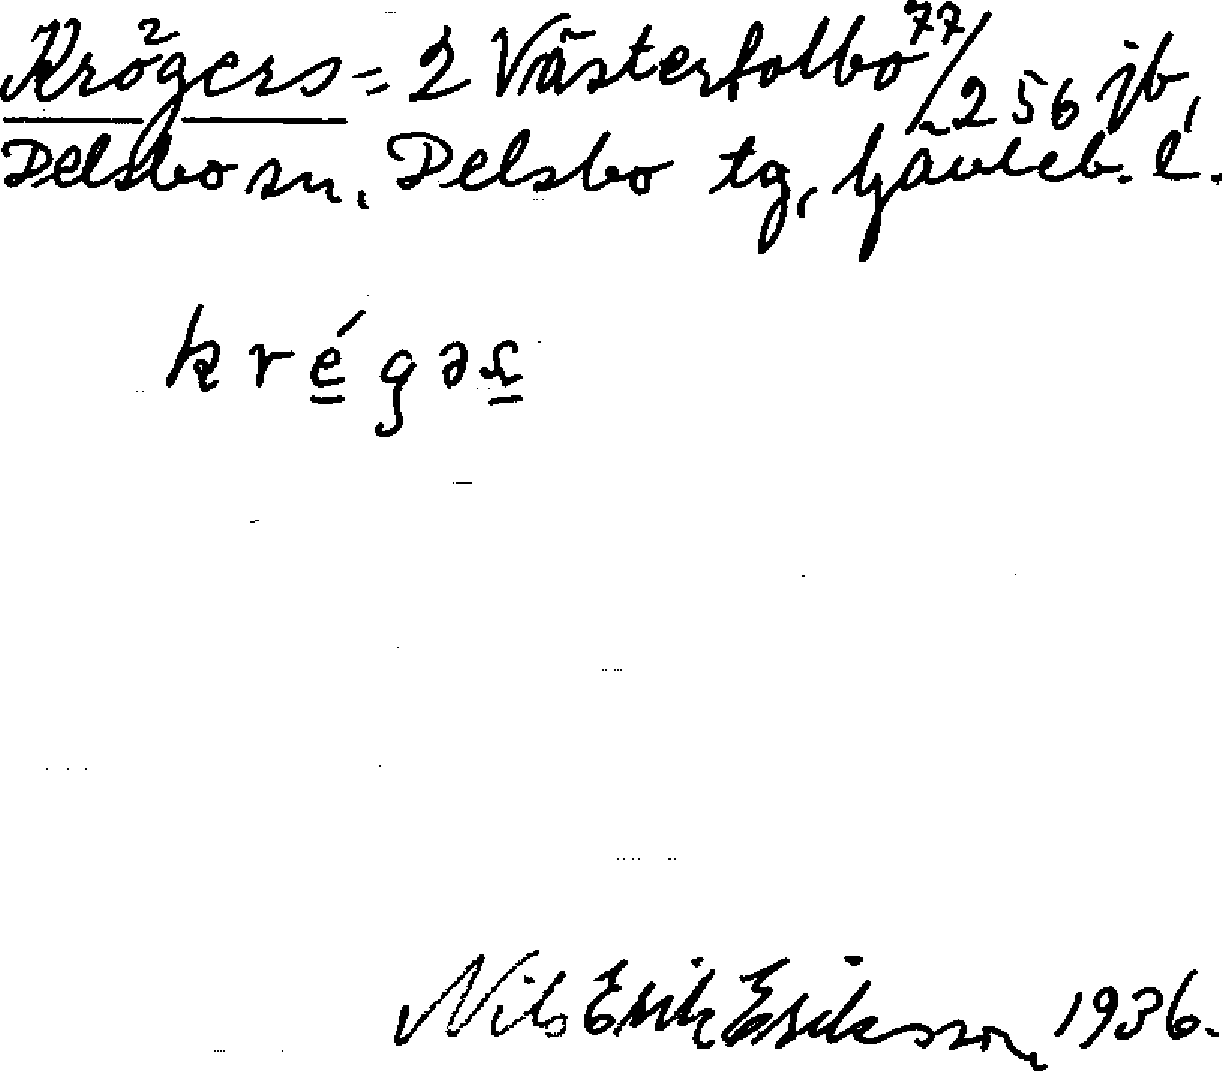 Krögers = 2 Västerfolbo 77/256 jb,
Delsbo sn, Delsbo tg, Gävleb. l.
Nils Erik Eriksson, 1936.